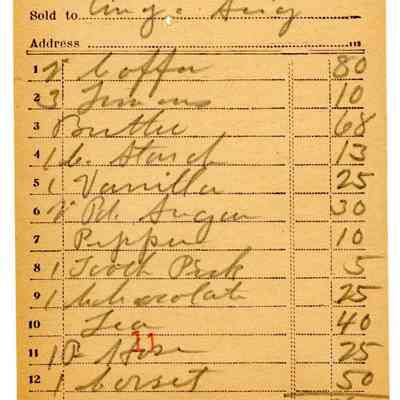 Sold to
Address 112
1 2 Coffee 80
2 3 Lemons 10
3 Butter 68
4 1 C. Starch 13
5 1 Vanilla 25
6 2 Pd. Sugar 30
7 Pepper 10
8 1 Tooth Pick 5
9 1 Chocolate 25
10 Tea 40
11 1 P. Hose 25
11
12 1 Corset 50